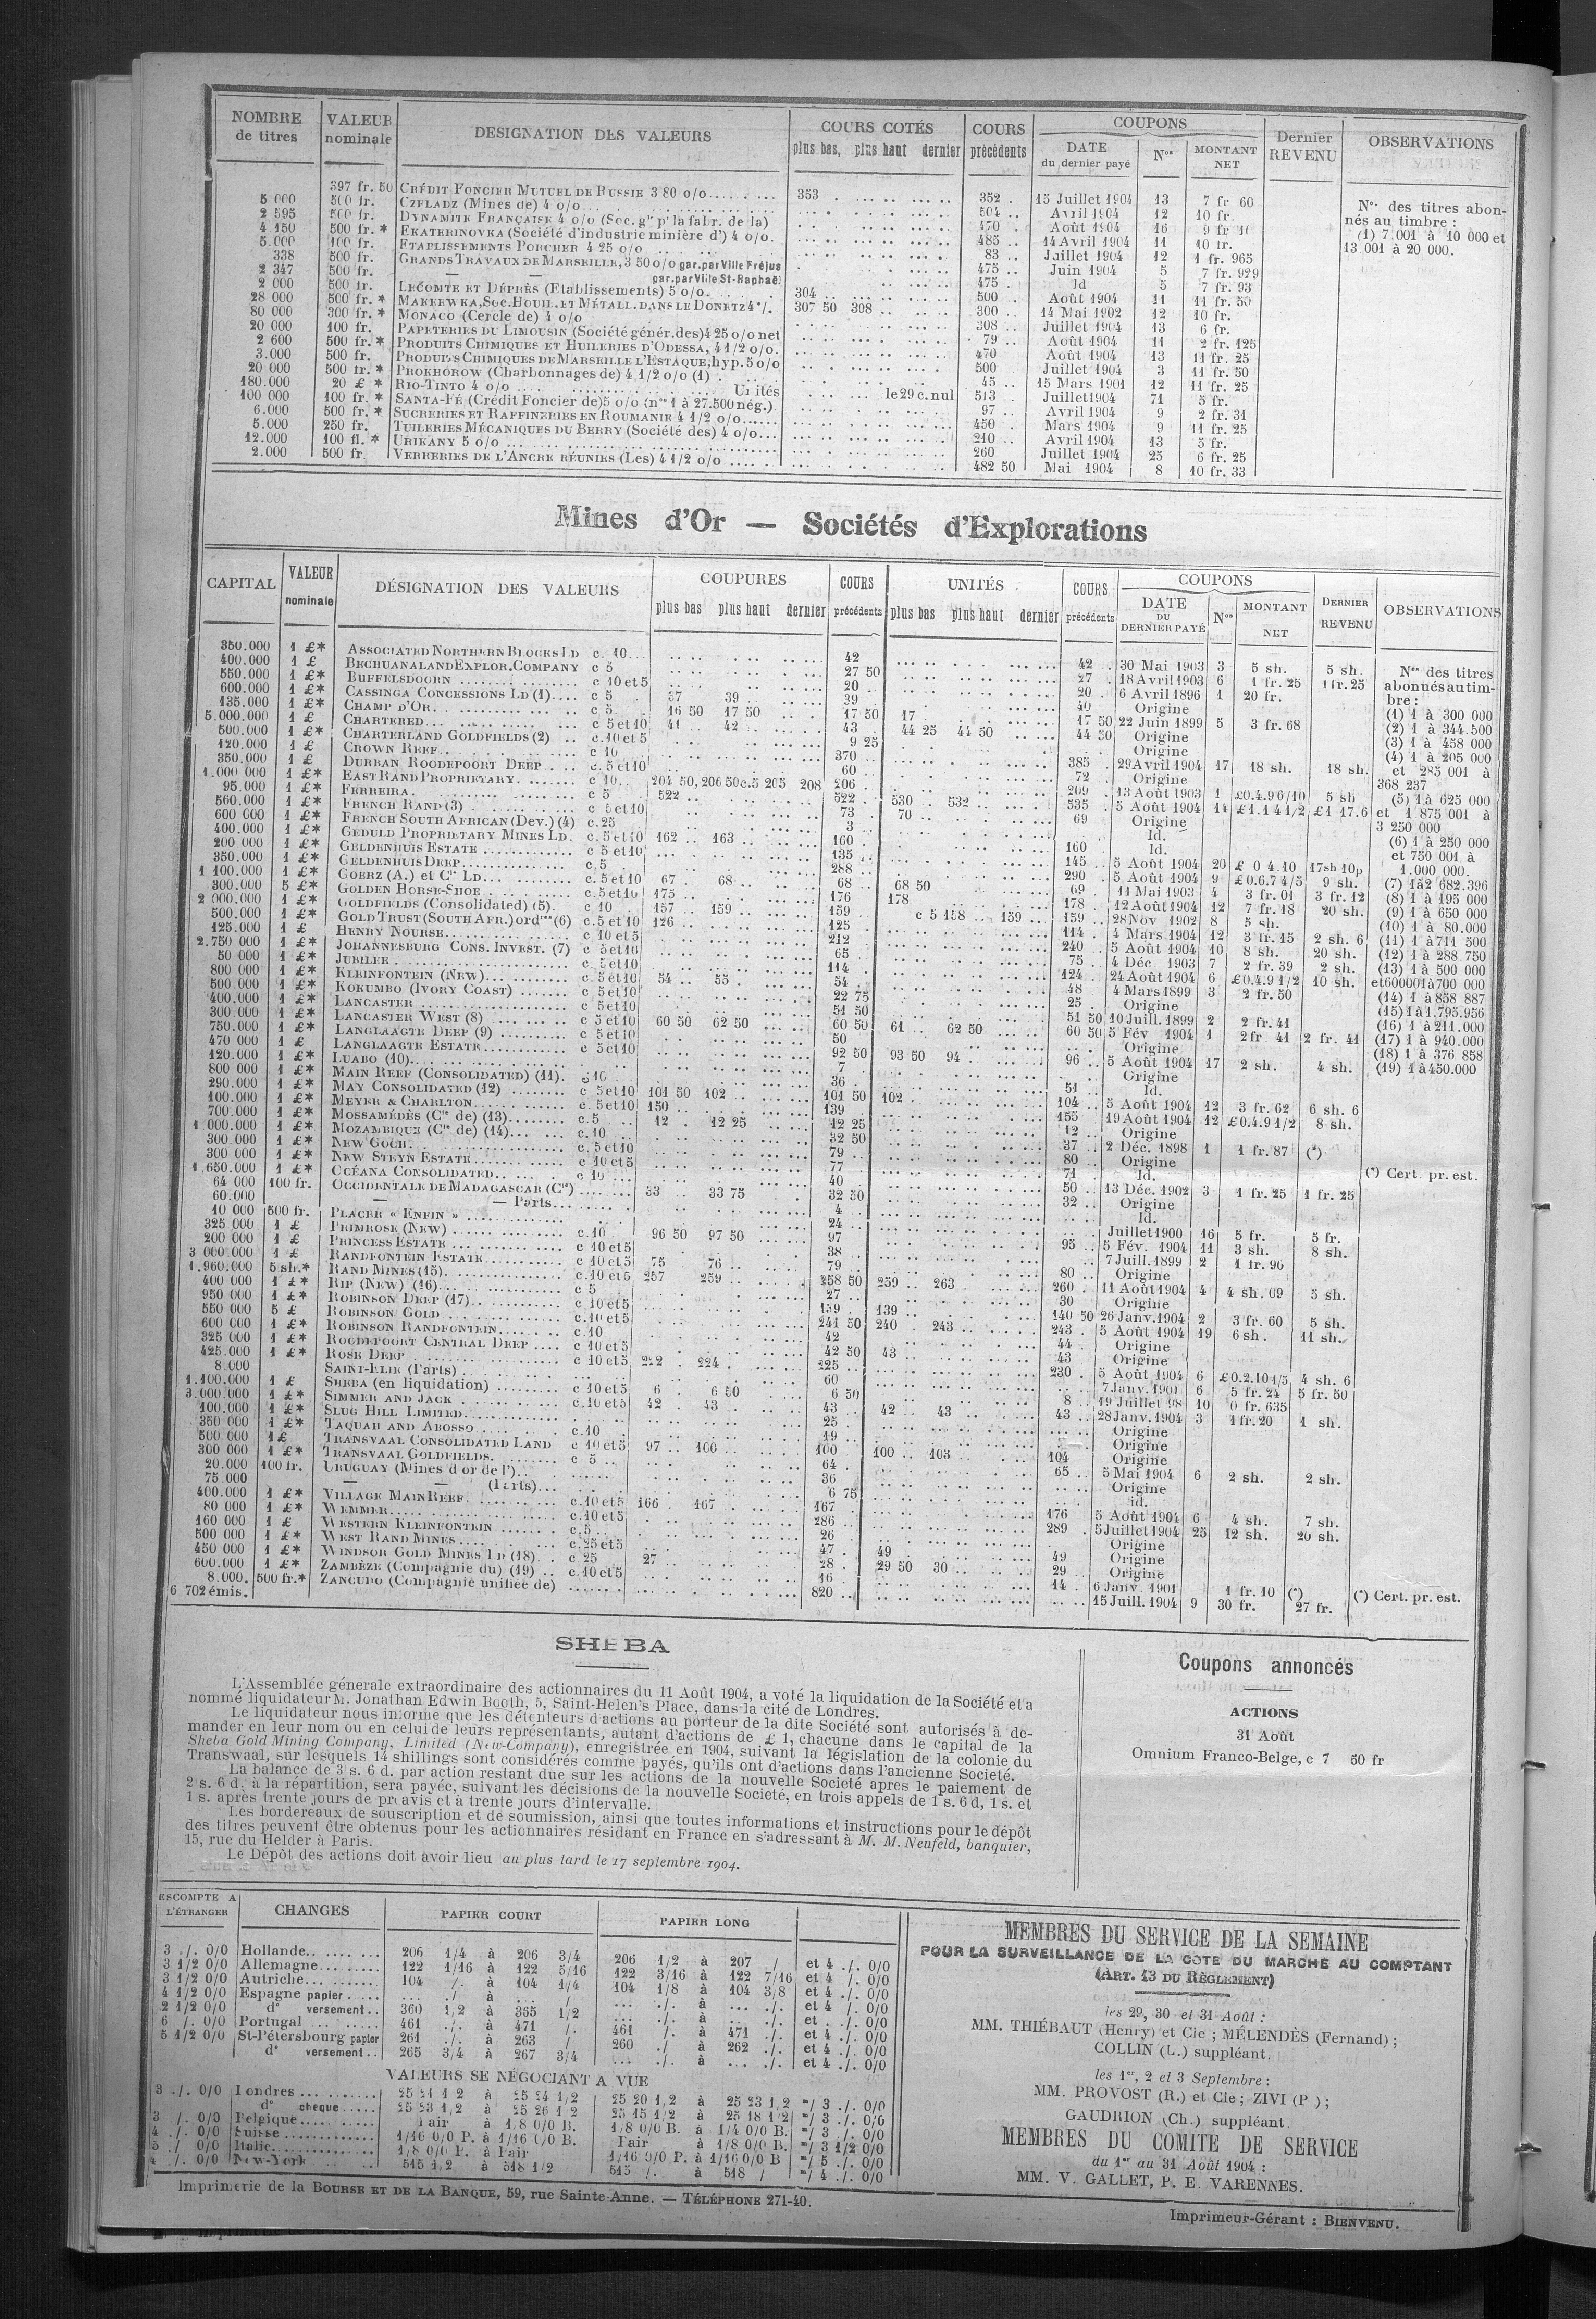 NOMBRE de titres | VALEUR nominale | DESIGNATION DES VALEURS | COURS COTÉS plus bas, plus haut dernier | COURS précédents | COUPONS DATE du dernier payé | Nos | MONTANT NET | Dernier REVENU | OBSERVATIONS
397 fr. 50 CRÉDIT FONCIER MUTUEL DE RUSSIE 3 80 o/o 353 . 352 . 15 Juillet 1904 13 7 fr 60
5 000 500 fr. CZELADZ (Mines de) 4 o/o 504 .. Avril 1904 12 10 fr.
2 595 500 fr. DYNAMITE FRANÇAISE 4 o/o (Soc. gle pr la fabr. de la) 470 . Août 1904 16
4 150 500 fr. * EKATERINOVKA (Société d'industrie minière d') 4 o/o. 485 .. 14 Avril 1904 11 10 fr.
5.000 100 fr. ETABLISSEMENTS PORCHER 4 25 o/o 83 .. Juillet 1904 12 1 fr. 965
338 500 fr. GRANDS TRAVAUX DE MARSEILLE, 3 50 o/o gar. par Ville Fréjus 475 .. Juin 1904 5 7 fr. 929
2 347 500 fr. — — gar. par Ville St-Raphaël 475 . Id 5 7 fr. 93
2 000 500 fr. LECOMTE ET DÉPRÈS (Etablissements) 5 o/o 500 .. Août 1904 11 11 fr. 50
28 000 500 fr. * MAKEEWKA, Soc. HOUIL. ET MÉTALL. DANS LE DONETZ 4 °/. 304 .. 300 .. 14 Mai 1902 12 10 fr.
80 000 300 fr. * MONACO (Cercle de) 4 o/o 307 50 308 .. 308 .. Juillet 1904 13 6 fr.
20 000 100 fr. PAPETERIES DU LIMOUSIN (Société génér. des) 4 25 o/o net 79 .. Août 1904 11 2 fr. 125
2 600 500 fr. * PRODUITS CHIMIQUES ET HUILERIES D'ODESSA, 4 1/2 o/o. 470 Août 1904 13 11 fr. 25
3.000 500 fr. PRODUITS CHIMIQUES DE MARSEILLE L'ESTAQUE, hyp. 5 o/o 500 Juillet 1904 3 11 fr. 50
20 000 500 fr. * PROKHOROW (Charbonnages de) 4 1/2 o/o (1) 45 .. 15 Mars 1901 12 11 fr. 25
180.000 20 £ * RIO-TINTO 4 o/o Unités le 29 c. nul 513 . Juillet 1904 71 5 fr.
100 000 100 fr. * SANTA-FÉ (Crédit Foncier de) 5 o/o (nos 1 à 27.500 nég.) 97 .. Avril 1904 9 2 fr. 31
6.000 500 fr. * SUCRERIES ET RAFFINERIES EN ROUMANIE 4 1/2 o/o 450 . Mars 1904 9 11 fr. 25
5.000 250 fr. TUILERIES MÉCANIQUES DU BERRY (Société des) 4 o/o 210 .. Avril 1904 13 5 fr.
12.000 100 fl. * URIKANY 5 o/o 260 Juillet 1904 25 6 fr. 25
2.000 500 fr. VERRERIES DE L'ANCRE RÉUNIES (Les) 4 1/2 o/o 482 50 Mai 1904 8 10 fr. 33
Nos des titres abon-
nés au timbre :
(1) 7.001 à 10 000 et
13 001 à 20 000.
Mines d'Or — Sociétés d'Explorations
CAPITAL | VALEUR nominale | DÉSIGNATION DES VALEURS | COUPURES plus bas plus haut dernier | COURS précédents | UNITÉS plus bas plus haut dernier | COURS précédents | COUPONS DATE DU DERNIER PAYÉ | Nos | MONTANT NET | DERNIER REVENU | OBSERVATIONS
350.000 1 £* ASSOCIATED NORTHERN BLOCKS LD c. 10 42 42 . 30 Mai 1903 3 5 sh. 5 sh.
400.000 1 £ BECHUANALAND EXPLOR. COMPANY c 5 27 50 27 . 18 Avril 1903 6 1 fr. 25 1 fr. 25
550.000 1 £* BUFFELSDOORN c 10 et 5 20 . 20 . 6 Avril 1896 1 20 fr.
600.000 1 £* CASSINGA CONCESSIONS LD (1) c 5 37 39 . 39 . 40 Origine
135.000 1 £* CHAMP D'OR c 5 16 50 17 50 17 50 17 . 17 50 22 Juin 1899 5 3 fr. 68
5.000.000 1 £ CHARTERED c 5 et 10 41 42 43 . 44 25 44 50 44 50 Origine
500.000 1 £* CHARTERLAND GOLDFIELDS (2) c. 10 et 5 9 25 Origine
120.000 1 £ CROWN REEF c 10 370 .. 385 . 29 Avril 1904 17 18 sh. 18 sh.
350.000 1 £ DURBAN ROODEPOORT DEEP c. 5 et 10 60 72 . Origine
1.000 000 1 £* EAST RAND PROPRIETARY c 10 204 50, 206 50 c. 5 205 208 206 . 209 . 13 Août 1903 1 £0.4.96/10 5 sh
95.000 1 £* FERREIRA c 5 522 .. 522 .. 530 .. 532 535 . 5 Août 1904 14 £1.14 1/2 £1 17.6
560.000 1 £* FRENCH RAND (3) c 5 et 10 73 70 .. 69 Origine
600 000 1 £* FRENCH SOUTH AFRICAN (Dev.) (4) c. 25 3 .. Id.
400.000 1 £* GEDULD PROPRIETARY MINES LD. c. 5 et 10 162 .. 163 160 . 160 . Id.
200 000 1 £* GELDENHUIS ESTATE c 5 et 10 135 .. 145 .. 5 Août 1904 20 £ 0 4.10 17sh 10p
350.000 1 £* GELDENHUIS DEEP c. 5 288 .. 290 . 5 Août 1904 9 £0.6.7 4/5 9 sh.
1 100.000 1 £* GOERZ (A.) et Cie LD c. 5 et 10 67 . 68 68 .. 68 50 69 . 11 Mai 1903 4 3 fr. 01 3 fr. 12
300.000 5 £* GOLDEN HORSE-SHOE c. 5 et 10 175 176 178 178 . 12 Août 1904 12 7 fr. 18 20 sh.
2 000.000 1 £* GOLDFIELDS (Consolidated) (5) c. 10 157 .. 159 159 c 5 158 .. 159 .. 159 .. 28 Nov 1902 8 5 sh.
500.000 1 £* GOLD TRUST (SOUTH AFR.) ordres (6) c. 5 et 10 126 .. 125 114 .. 4 Mars 1904 12 3 fr. 15 2 sh. 6
125.000 1 £ HENRY NOURSE c 10 et 5 212 240 .. 5 Août 1904 10 8 sh. 20 sh.
2.750 000 1 £* JOHANNESBURG CONS. INVEST. (7) c 5 et 10 65 75 . 4 Déc. 1903 7 2 fr. 39 2 sh.
50 000 1 £* JUBILEE c. 5 et 10 114 . 124 . 24 Août 1904 6 £0.4.9 1/2 10 sh.
800 000 1 £* KLEINFONTEIN (NEW) c. 5 et 10 54 .. 55 54 .. 48 4 Mars 1899 3 2 fr. 50
500.000 1 £* KOKUMBO (IVORY COAST) c 5 et 10 22 75 25 . Origine
400.000 1 £* LANCASTER c 5 et 10 51 50 51 50 10 Juill. 1899 2 2 fr. 41
300.000 1 £* LANCASTER WEST (8) c 5 et 10 60 50 62 50 60 50 61 .. 62 50 60 50 5 Fév 1904 1 2 fr 41 2 fr. 41
750.000 1 £* LANGLAAGTE DEEP (9) c 5 et 10 50 Origine
470 000 1 £ LANGLAAGTE ESTATE c 5 et 10 92 50 93 50 94 96 .. 5 Août 1904 17 2 sh. 4 sh.
120.000 1 £* LUABO (10) 7 Origine
800 000 1 £* MAIN REEF (CONSOLIDATED) (11) c 10 36 . 51 Id.
290.000 1 £* MAY CONSOLIDATED (12) c 5 et 10 101 50 102 101 50 102 104 .. 5 Août 1904 12 3 fr. 62 6 sh. 6
100.000 1 £* MEYER & CHARLTON c. 5 et 10 150 139 155 19 Août 1904 12 £0.4.9 1/2 8 sh.
700.000 1 £* MOSSAMÉDÈS (Cie de) (13) c. 5 12 . 12 25 12 25 12 .. Origine
1 000.000 1 £* MOZAMBIQUE (Cie de) (14) c. 10 32 50 37 2 Déc. 1898 1 1 fr. 87 (*)
300.000 1 £* NEW GOCH c. 5 et 10 79 .. 80 .. Origine
300 000 1 £* NEW STEYN ESTATE c. 10 et 5 77 71 Id.
1.650.000 1 £* OCÉANA CONSOLIDATED c 10 40 50 .. 13 Déc. 1902 3 1 fr. 25 1 fr. 25
64 000 100 fr. OCCIDENTALE DE MADAGASCAR (Cie) 33 .. 33 75 32 50 32 .. Origine
60.000 — — Parts 4 .. Id.
10 000 500 fr. PLACER « ENFIN » 24 .. Juillet 1900 16 5 fr. 5 fr.
325 000 1 £ PRIMROSE (NEW) c. 10 96 50 97 50 97 95 .. 5 Fév. 1904 11 3 sh. 8 sh.
200 000 1 £ PRINCESS ESTATE c 10 et 5 38 7 Juill. 1899 2 1 fr. 90
3 000.000 1 £ RANDFONTEIN ESTATE c 10 et 5 75 76 79 80 .. Origine
1.960.000 5 sh.* RAND MINES (15) c. 10 et 5 257 259 258 50 259 .. 263 260 . 11 Août 1904 4 4 sh. 69 5 sh.
400 000 1 £* RIP (NEW) (16) c 5 27 30 Origine
950 000 1 £* ROBINSON DEEP (17) c 10 et 5 139 .. 139 140 50 26 Janv. 1904 2 3 fr. 60 5 sh.
550 000 5 £ ROBINSON GOLD c. 10 et 5 241 50 240 243 243 . 5 Août 1904 19 6 sh. 11 sh.
600 000 1 £* ROBINSON RANDFONTEIN c. 10 42 44 . Origine
325 000 1 £* ROODEPOORT CENTRAL DEEP c 10 et 5 42 50 43 43 Origine
425.000 1 £* ROSE DEEP c 10 et 5 222 . 224 225 230 . 5 Août 1904 6 £0.2.10 4/5 4 sh. 6
8.000 SAINT-ELIE (Parts) 60 7 Janv. 1901 6 5 fr. 24 5 fr. 50
1.100.000 1 £ SHEBA (en liquidation) c 10 et 5 6 . 6 50 6 50 8 .. 19 Juillet 98 10 0 fr. 635
3.000.000 1 £* SIMMER AND JACK c. 10 et 5 42 . 43 43 42 43 43 .. 28 Janv. 1904 3 1 fr. 20 1 sh.
100.000 1 £* SLUG HILL LIMITED 25 Origine
350 000 1 £* TAQUAH AND ABOSSO c. 10 19 Origine
500 000 1 £ TRANSVAAL CONSOLIDATED LAND c 10 et 5 97 .. 100 100 100 .. 103 104 Origine
300 000 1 £* TRANSVAAL GOLDFIELDS c 5 64 . 65 . 5 Mai 1904 6 2 sh. 2 sh.
20.000 100 fr. URUGUAY (Mines d'or de l') 36 Origine
75.000 — (Parts) 6 75 id.
400.000 1 £* VILLAGE MAIN REEF c. 10 et 5 166 . 167 167 176 5 Août 1904 6 4 sh. 7 sh.
80 000 1 £* WEMMER c. 10 et 5 286 289 . 5 Juillet 1904 25 12 sh. 20 sh.
160 000 1 £ WESTERN KLEINFONTEIN c. 5 26 Origine
500 000 1 £* WEST RAND MINES c. 25 et 5 47 . 49 49 Origine
450 000 1 £* WINDSOR GOLD MINES LD (18) c 25 27 28 . 29 50 30 29 Origine
600.000 1 £* ZAMBÈZE (Compagnie du) (19) c. 10 et 5 16 14 . 6 Janv. 1901 1 fr. 10 (*)
8.000. 500 fr.* ZANCUDO (Compagnie unifiée de) 820 .. 15 Juill. 1904 9 30 fr. 27 fr.
6 702 émis.
Nos des titres
abonnés au tim-
bre :
(1) 1 à 300 000
(2) 1 à 344.500
(3) 1 à 458 000
(4) 1 à 205 000
et 285 001 à
368 237
(5) 1 à 625 000
et 1 875 001 à
3 250 000
(6) 1 à 250 000
et 750 001 à
1.000 000.
(7) 1 à 2 682.396
(8) 1 à 195 000
(9) 1 à 650 000
(10) 1 à 80.000
(11) 1 à 711 500
(12) 1 à 288.750
(13) 1 à 500 000
et 600001 à 700 000
(14) 1 à 858 887
(15) 1 à 1.795.956
(16) 1 à 211.000
(17) 1 à 940.000
(18) 1 à 376 858
(19) 1 à 450.000
(*) Cert. pr. est.
(*) Cert. pr. est.
SHEBA
L'Assemblée génerale extraordinaire des actionnaires du 11 Août 1904, a voté la liquidation de la Société et a
nommé liquidateur M. Jonathan Edwin Booth, 5, Saint-Helen's Place, dans la cité de Londres.
Le liquidateur nous informe que les détenteurs d'actions au porteur de la dite Société sont autorisés à de-
mander en leur nom ou en celui de leurs représentants, autant d'actions de £ 1, chacune dans le capital de la
Sheba Gold Mining Company, Limited (New-Company), enregistrée en 1904, suivant la législation de la colonie du
Transwaal, sur lesquels 14 shillings sont considérés comme payés, qu'ils ont d'actions dans l'ancienne Societé.
La balance de 3 s. 6 d. par action restant due sur les actions de la nouvelle Societé apres le paiement de
2 s. 6 d. à la répartition, sera payée, suivant les décisions de la nouvelle Societé, en trois appels de 1 s. 6 d, 1 s. et
1 s. après trente jours de préavis et à trente jours d'intervalle.
Les bordereaux de souscription et de soumission, ainsi que toutes informations et instructions pour le dépôt
des titres peuvent être obtenus pour les actionnaires résidant en France en s'adressant à M. M. Neufeld, banquier,
15, rue du Helder à Paris.
Le Dépôt des actions doit avoir lieu au plus tard le 17 septembre 1904.
Coupons annoncés
ACTIONS
31 Août
Omnium Franco-Belge, c 7 50 fr
ESCOMPTE A L'ÉTRANGER | CHANGES | PAPIER COURT | PAPIER LONG
3 ./. 0/0 Hollande 206 1/4 à 206 3/4 206 1/2 à 207 / et 4 ./. 0/0
3 1/2 0/0 Allemagne 122 1/16 à 122 5/16 122 3/16 à 122 7/16 et 4 /. 0/0
3 1/2 0/0 Autriche 104 /. à 104 1/4 104 1/8 à 104 3/8 et 4 ./. 0/0
4 1/2 0/0 Espagne papier ... ./ à ... / ... ./. à ... ./. et 4 /. 0/0
2 1/2 0/0 do versement 360 1/2 à 365 1/2 ... ./. à ... ./. et . ./. 0/0
6 /. 0/0 Portugal 461 ./. à 471 /. 461 /. à 471 ./. et 4 ./. 0/0
5 1/2 0/0 St-Pétersbourg papier 261 ./. à 263 / 260 ./ à 262 ./. et 4 ./. 0/0
do versement 265 3/4 à 267 3/4 ... ./. à ... ./. et 4 ./. 0/0
VALEURS SE NÉGOCIANT A VUE
3 ./. 0/0 Londres 25 21 1 2 à 25 24 1/2 25 20 1/2 à 25 23 1/2 -/ 3 ./. 0/0
do cheque 25 23 1/2 à 25 26 1 2 25 15 1/2 à 25 18 1/2 -/ 3 ./. 0/0
3 /. 0/0 Belgique Pair à 1/8 0/0 B. 1/8 0/0 B. à 1/4 0/0 B. -/ 3 /. 0/0
4 ./. 0/0 Suisse 1/16 0/0 P. à 1/16 0/0 B. Pair à 1/8 0/0 B. -/ 3 1/2 0/0
5 ./ 0/0 Italie 1/8 0/0 P. à Pair 1/16 0/0 P. à 1/16 0/0 B -/ 5 ./. 0/0
./. 0/0 New-York 515 1/2 à 518 1/2 515 /. à 518 / -/ 4 ./. 0/0
MEMBRES DU SERVICE DE LA SEMAINE
POUR LA SURVEILLANCE DE LA COTE DU MARCHÉ AU COMPTANT
(ART. 13 DU RÈGLEMENT)
les 29, 30 et 31 Août :
MM. THIÉBAUT (Henry) et Cie ; MÉLENDÈS (Fernand) ;
COLLIN (L.) suppléant.
les 1er, 2 et 3 Septembre :
MM. PROVOST (R.) et Cie ; ZIVI (P ) ;
GAUDRION (Ch.) suppléant.
MEMBRES DU COMITE DE SERVICE
du 1er au 31 Août 1904 :
MM. V. GALLET, P. E. VARENNES.
Imprimerie de la BOURSE ET DE LA BANQUE, 59, rue Sainte-Anne. — TÉLÉPHONE 271-40.
Imprimeur-Gérant : BIENVENU.